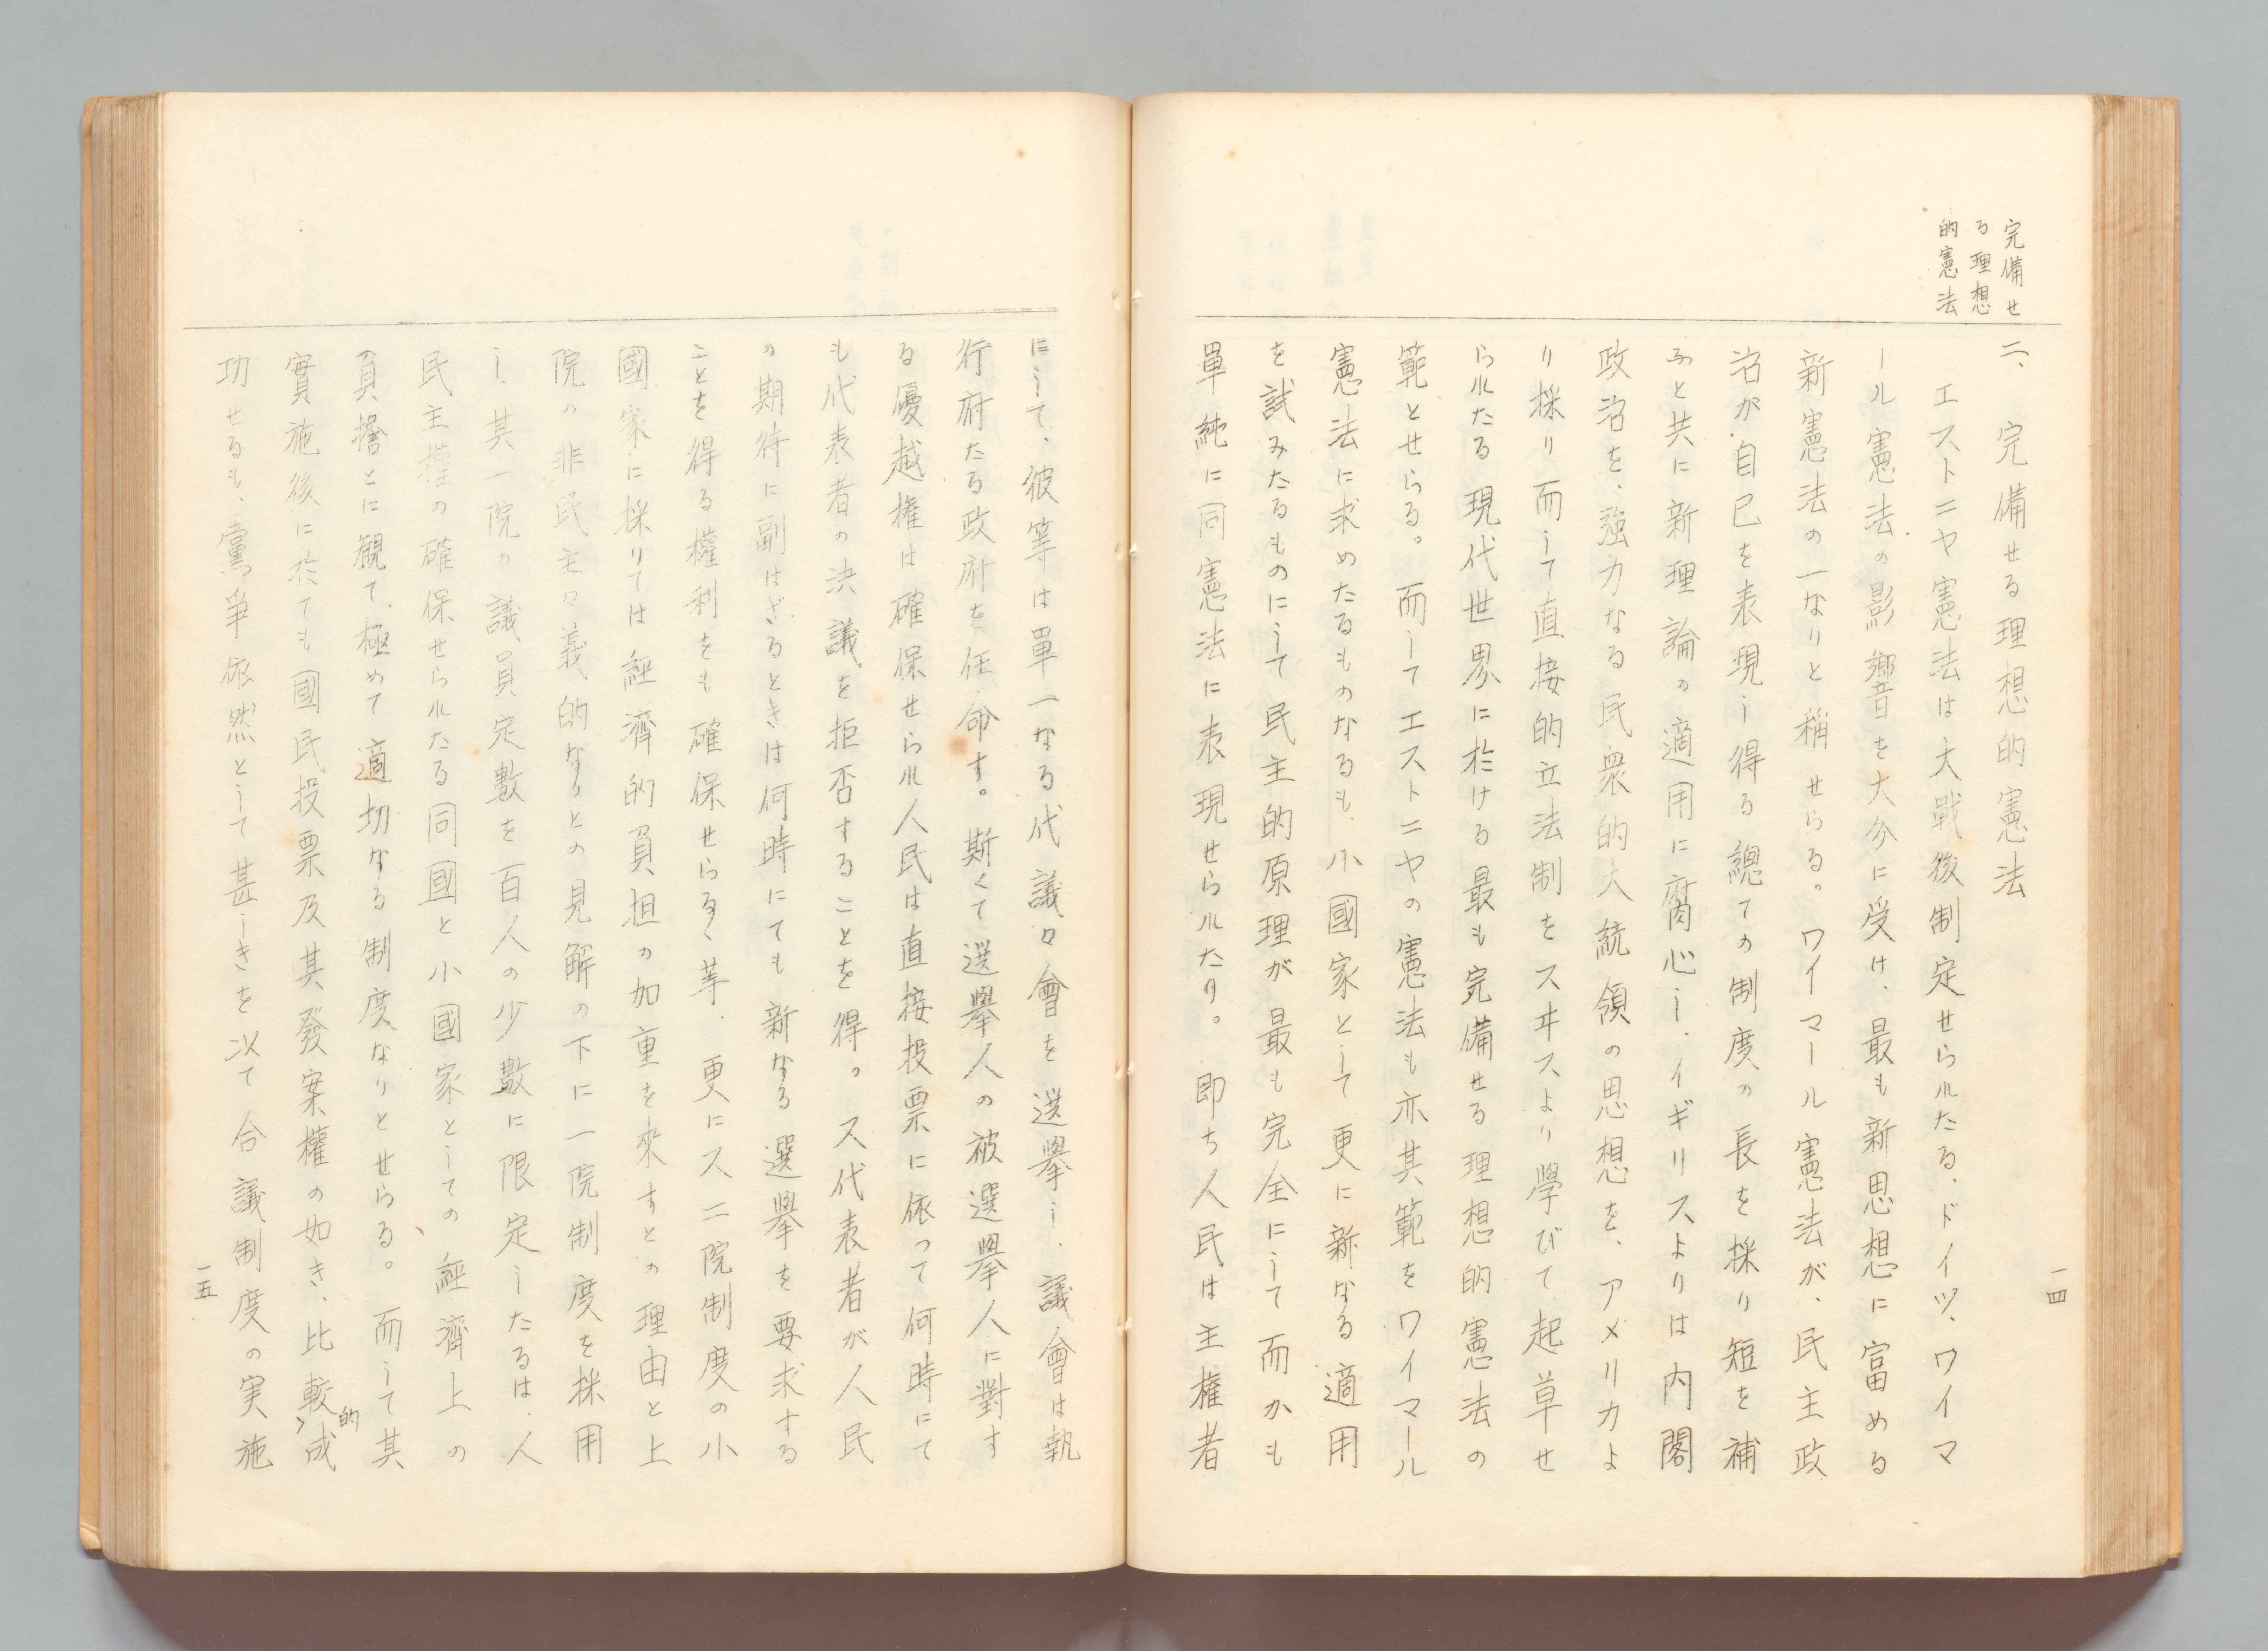 完備せ
る理想
的憲法
二、完備せる理想的憲法
エストニヤ憲法は大戰後制定せられたる、ドイツ、ワイマ
ール憲法の影響を大分に受け、最も新思想に富める
新憲法の一なりと稱せらる。ワイマール憲法が、民主政
治が自己を表現し得る總ての制度の長を採り短を補
ふと共に新理論の適用に腐心し、イギリスよりは内閣
政治を、強力なる民衆的大統領の思想を、アメリカよ
り採り而して直接的立法制をスヰスより學びて起草せ
られたる現代世界に於ける最も完備せる理想的憲法の
範とせらる。而してエストニヤの憲法も亦其範をワイマール
憲法に求めたるものなるも、小國家として更に新なる適用
を試みたるものにして民主的原理が最も完全にして而かも
單純に同憲法に表現せられたり。即ち人民は主權者
一四
にして、彼等は單一なる代議々會を選擧し、議會は執
行府たる政府を任命す。斯くて選擧人の被選擧人に對す
る優越権は確保せられ人民は直接投票に依って何時にて
も代表者の決議を拒否することを得。又代表者が人民
の期待に副はざるときは何時にても新なる選擧を要求する
ことを得る權利をも確保せらるゝ等、更に又二院制度の小
國家に採りては經濟的負担の加重を來すとの理由と上
院の非民主々義的なりとの見解の下に一院制度を採用
し、其一院の議員定數を百人の少數に限定したるは、人
民主權の確保せられたる同國と小國家としての經濟上の
負擔とに観て極めて適切なる制度なりとせらる。而して其
實施後に於ても國民投票及其發案權の如き、比較的成
功せるも、黨爭依然として甚しきを以て合議制度の実施
一五